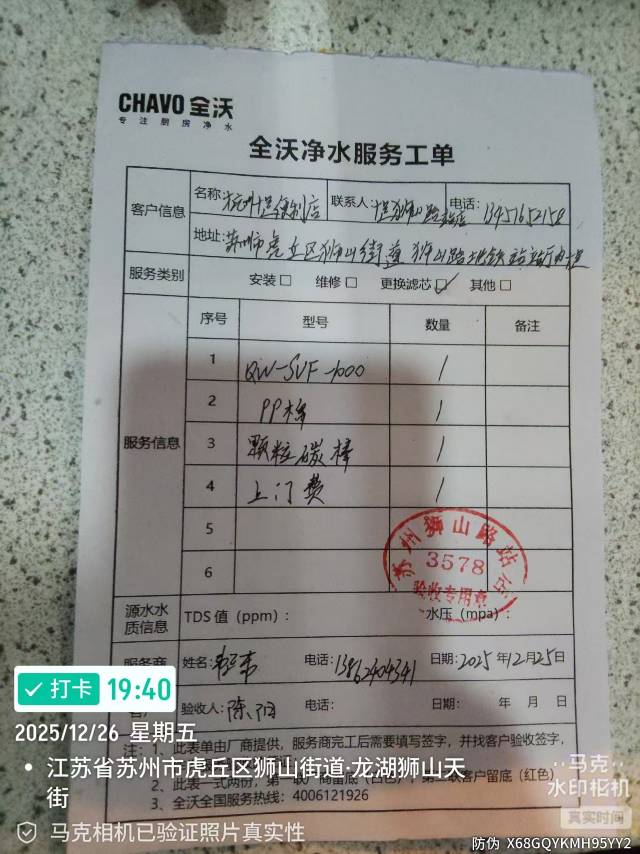 CHAVO 全沃
专注厨房净水
全沃净水服务工单
客户信息 名称: 杭州十足便利店 联系人: 十足狮山路站店 电话: 13451652158
地址: 苏州市虎丘区狮山街道 狮山路地铁站站厅内十足
服务类别 安装□ 维修□ 更换滤芯☑ 其他□
服务信息
序号 型号 数量 备注
1 QW-SVF-1000 1
2 PP棉 1
3 颗粒碳棒 1
4 上门费 1
5
6
苏州狮山路站店
3578
验收专用章
源水水质信息 TDS 值（ppm）: 水压（mpa）:
服务商 姓名: 电话: 13862404341 日期: 2025年12月25日
验收人: 陈 电话: 日期: 年 月 日
注: 1、此表单由厂商提供，服务商完工后需要填写签字，并找客户验收签字，
2、此表一式两份，第一联厂商留底（白色），第二联客户留底（红色）
3、全沃全国服务热线: 4006121926
打卡 19:40
2025/12/26 星期五
江苏省苏州市虎丘区狮山街道·龙湖狮山天街
马克相机已验证照片真实性
马克
水印相机
真实时间
防伪 X68GQYKMH95YY2